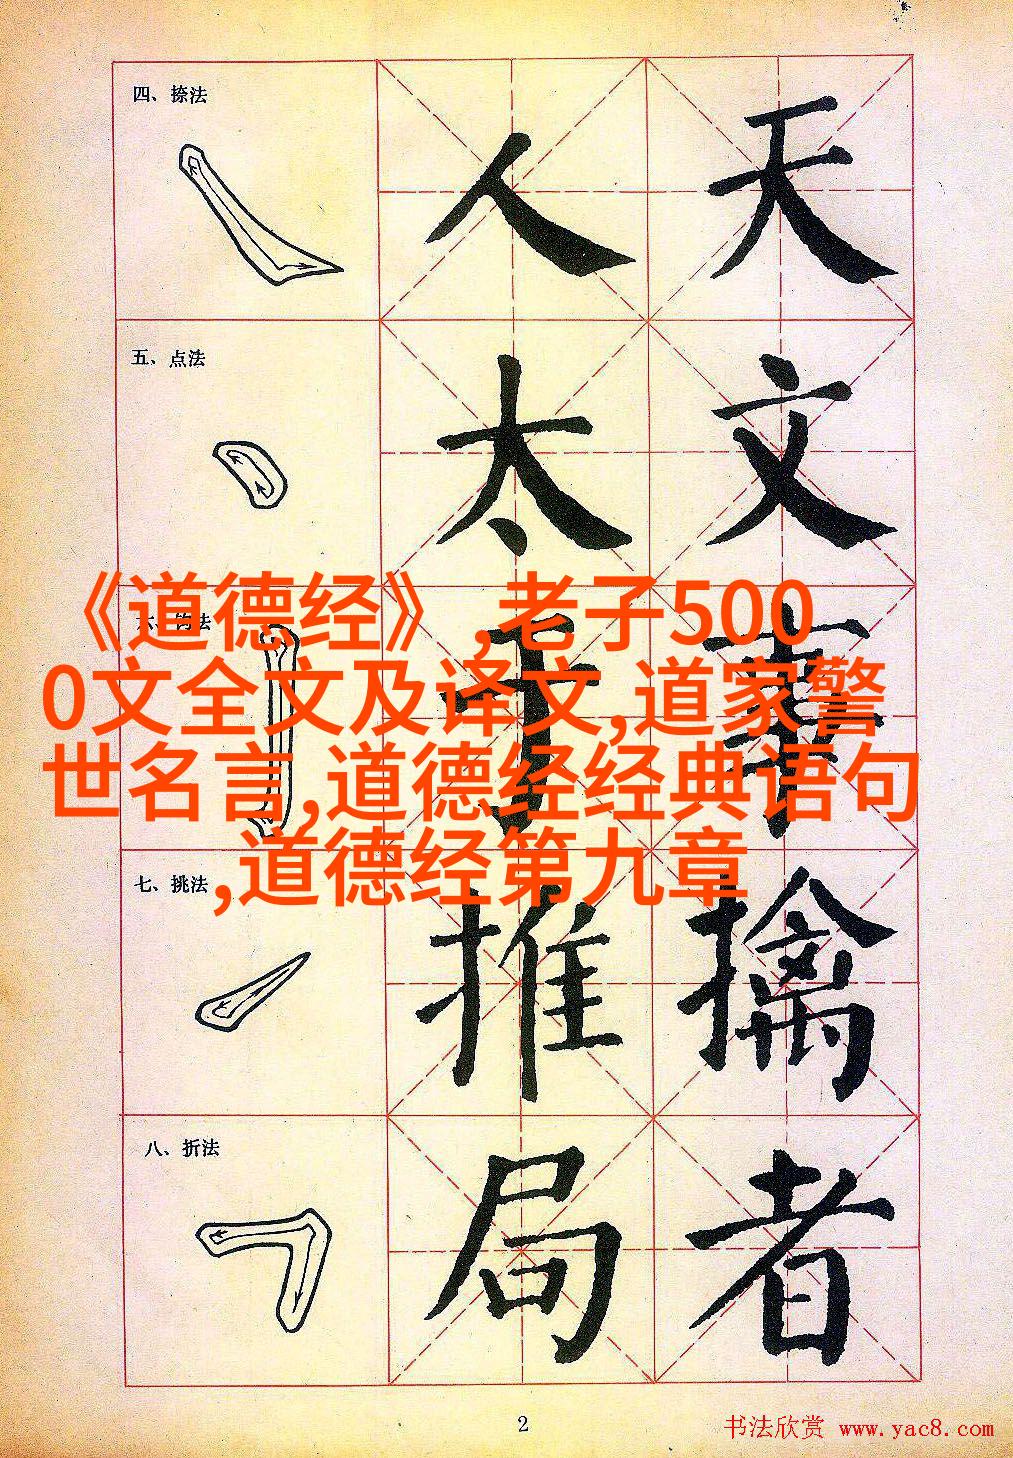 四、捺法
人 天
五、点法
太 文
《道德经》,老子500
0文全文及译文,道家警
世名言,道德经经典语句
,道德经第九章
七、挑法
推 擒
八、折法
局 者
2
书法欣赏 www.yac8.com